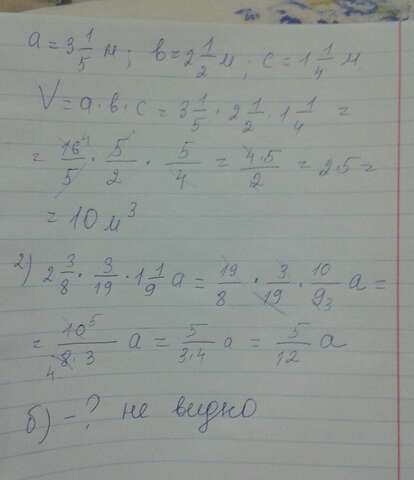 a = 3 1/5 м; в = 2 1/2 м; c = 1 1/4 м
V = a · в · c = 3 1/5 · 2 1/2 · 1 1/4 =
= 16⁴/5 · 5¹/2 · 5/4 = 4·5/2 = 2·5 =
= 10 м³
2) 2 3/8 · 3/19 · 1 1/9 a = 19/8 · 3/19 · 10/9₃ a =
= 10⁵/₄8·3 a = 5/3·4 a = 5/12 a
б) – ? не видно